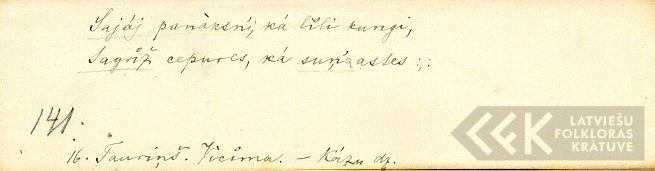 Sajāj panāksņi, kā lĩli kungi,
Sagrĩž cepures, kā suņa astes :,:
141.
16. Tauriņš. Vīcima. – Kāzu dz.
LATVIEŠU
FOLKLORAS
KRĀTUVE